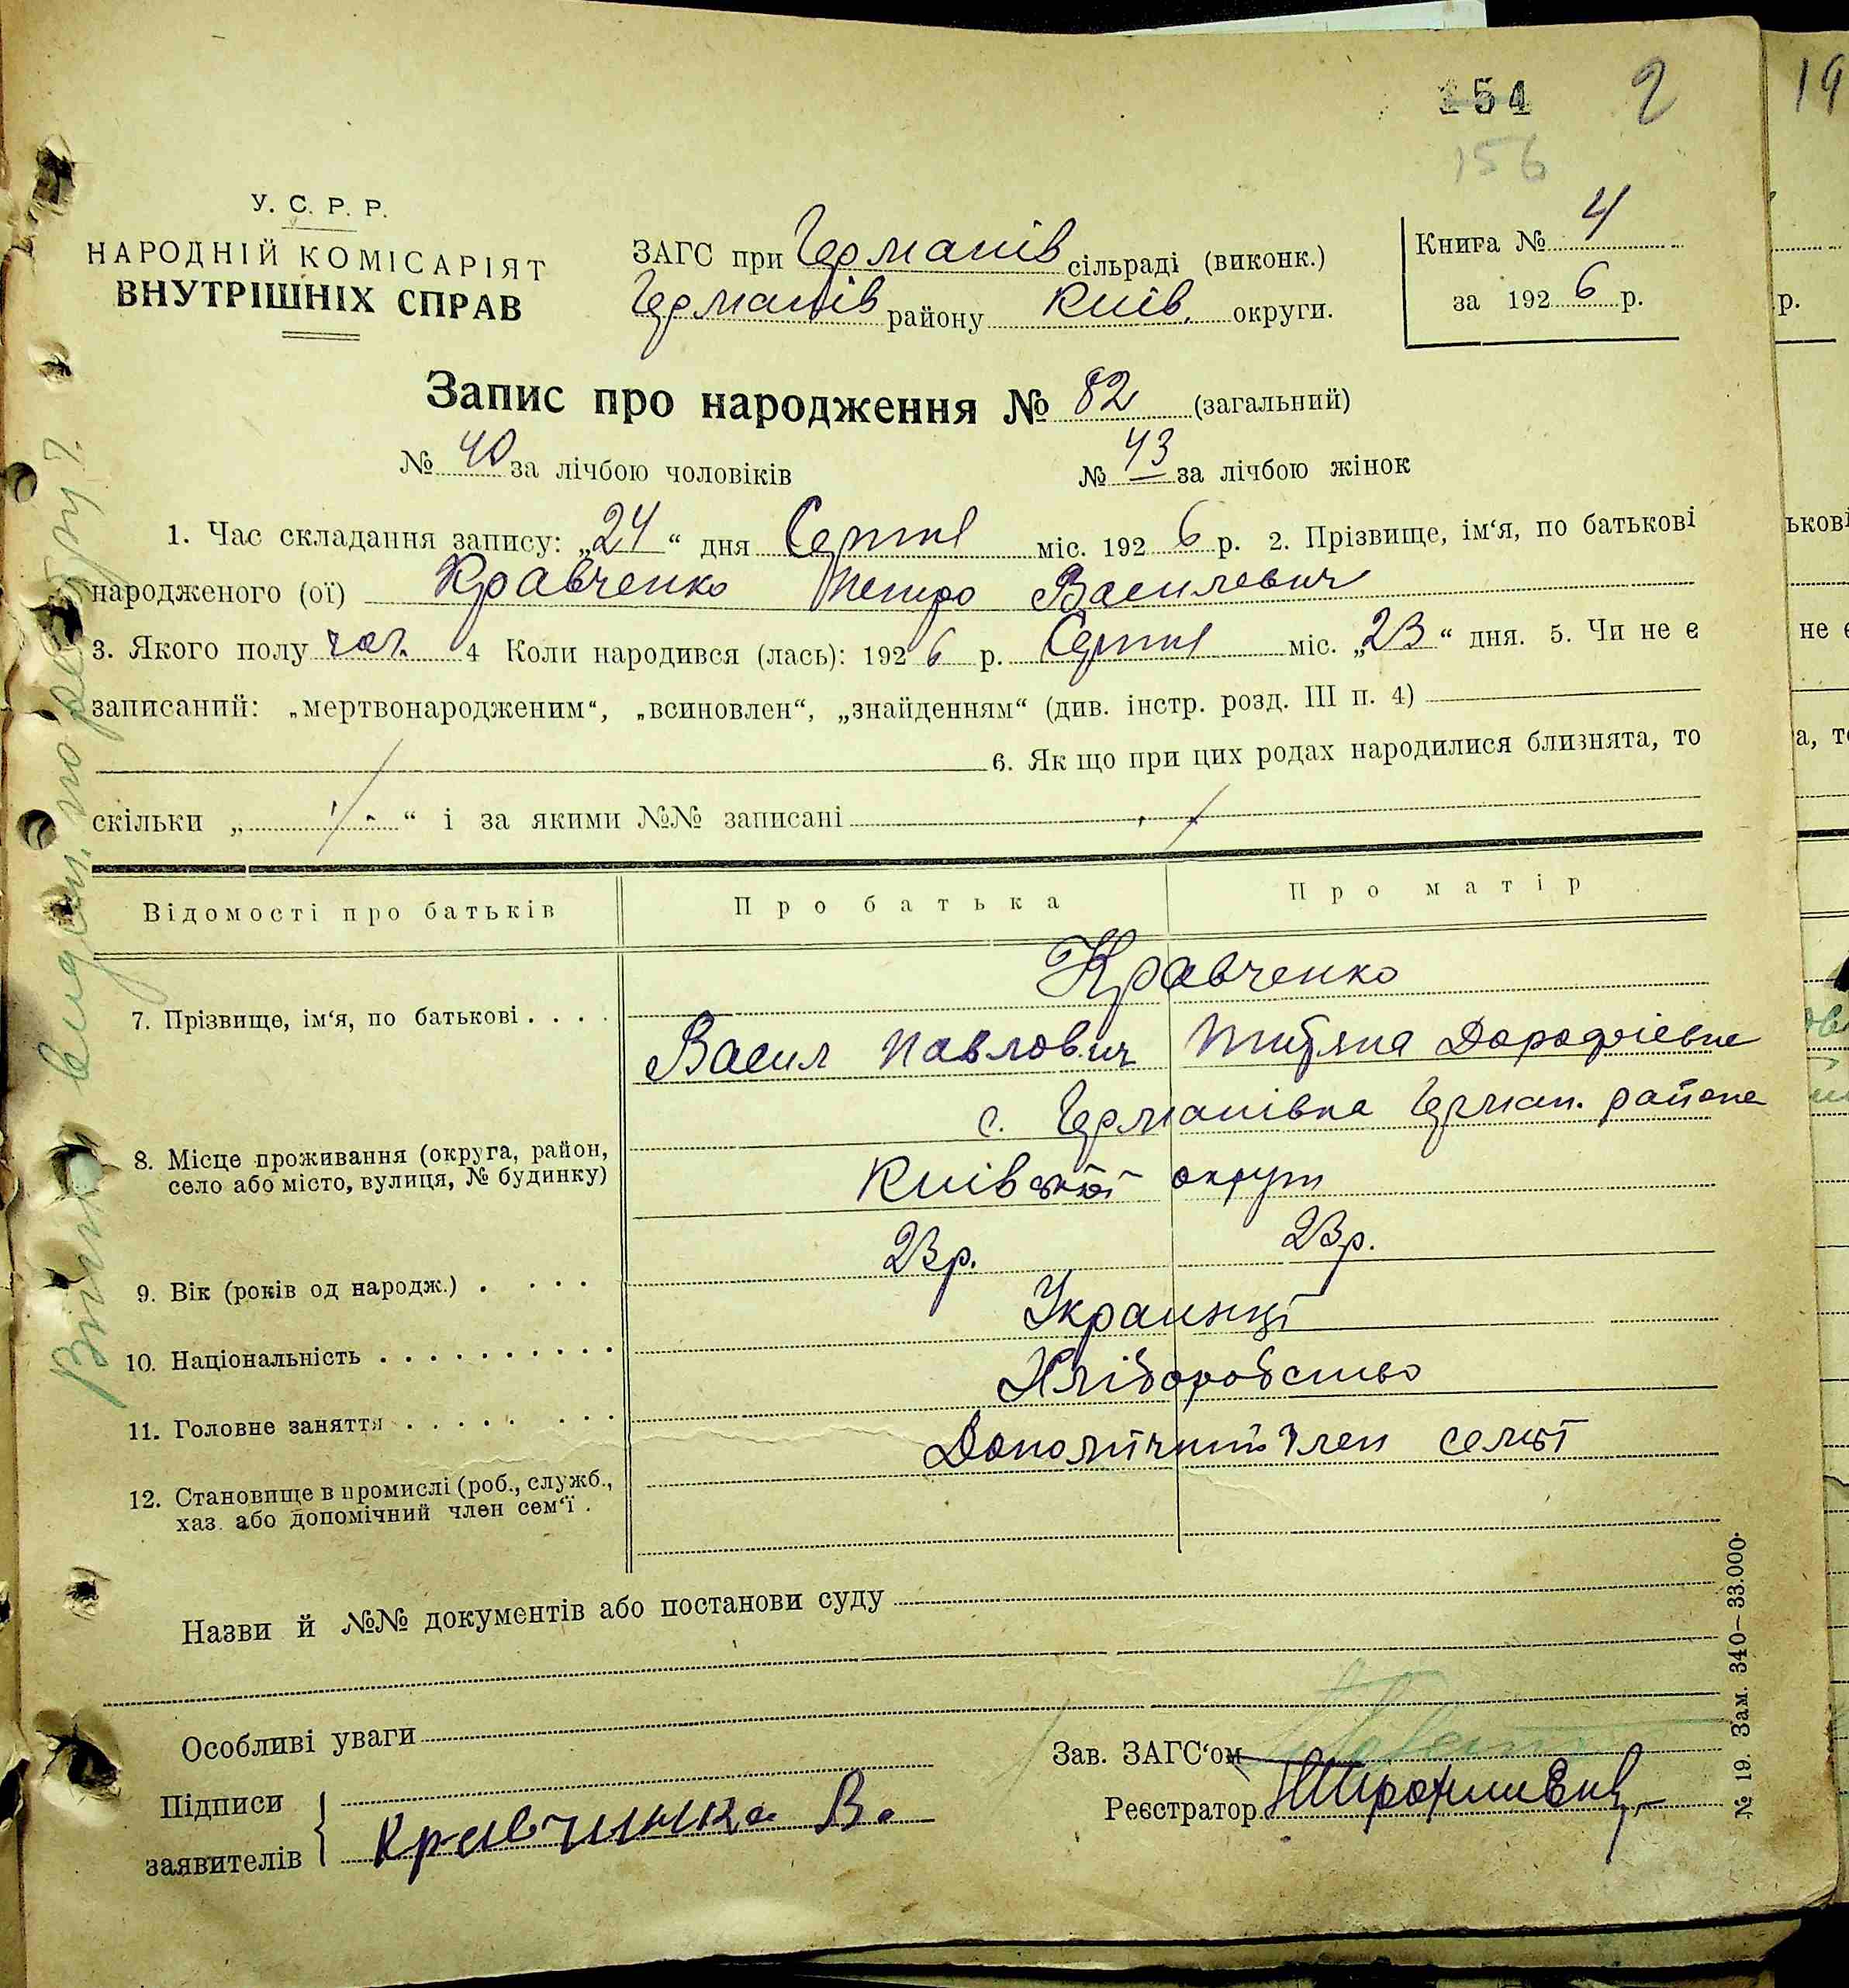 154 2
156
У. С. Р. Р.
НАРОДНІЙ КОМІСАРІЯТ
ВНУТРІШНІХ СПРАВ
ЗАГС при Германів сільраді (виконк.)
Германів району Київ. округи.
Книга № 4
за 1926 р.
Запис про народження № 82 (загальний)
№ 40 за лічбою чоловіків № 43 за лічбою жінок
1. Час складання запису: „24“ дня Серпня міс. 1926 р. 2. Прізвище, ім‘я, по батькові
народженого (ої) Кравченко Петро Василевич
3. Якого полу чол. 4 Коли народився (лась): 1926 р. Серпня міс. „23“ дня. 5. Чи не є
записаний: „мертвонародженим“, „всиновлен“, „знайденням“ (див. інстр. розд. III п. 4)
6. Як що при цих родах народилися близнята, то
скільки „ “ і за якими №№ записані
Відомості про батьків Про батька Про матір
Кравченко
7. Прізвище, ім‘я, по батькові . . . .
Васил Павлович Титяна Дорофієвна
с. Германівка Герман. района
8. Місце проживання (округа, район,
село або місто, вулиця, № будинку)
Київської округи
9. Вік (років од народж.) . . . . 23 р. 23 р.
10. Національність . . . . . . . . . . Украинці
11. Головне заняття . . . . . . . . Хліборобство
Допомічний член семьї
12. Становище в промислі (роб., служб.,
хаз. або допомічний член сем‘ї .
Назви й №№ документів або постанови суду
Особливі уваги
Зав. ЗАГС‘ом
Підписи
заявителів
Кравчинка В.
Реєстратор
№ 19. Зам. 340—33.000.